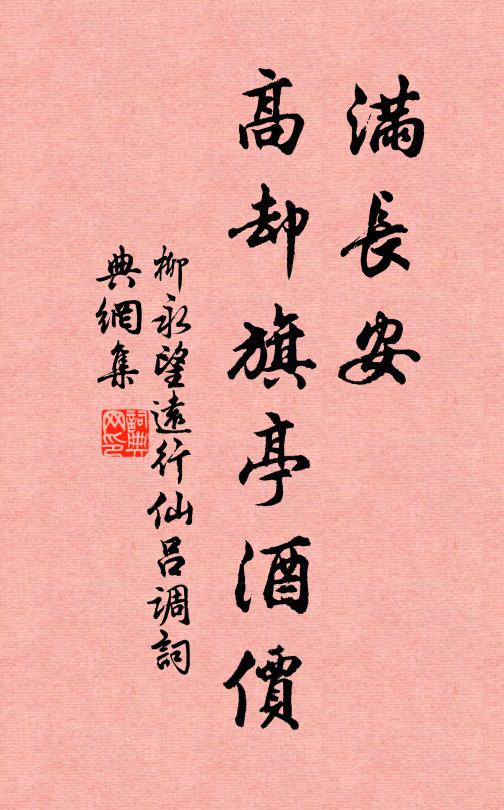 滿長安
高却旗亭酒價
柳永望遠行仙吕調詞
典網集
詞典網印